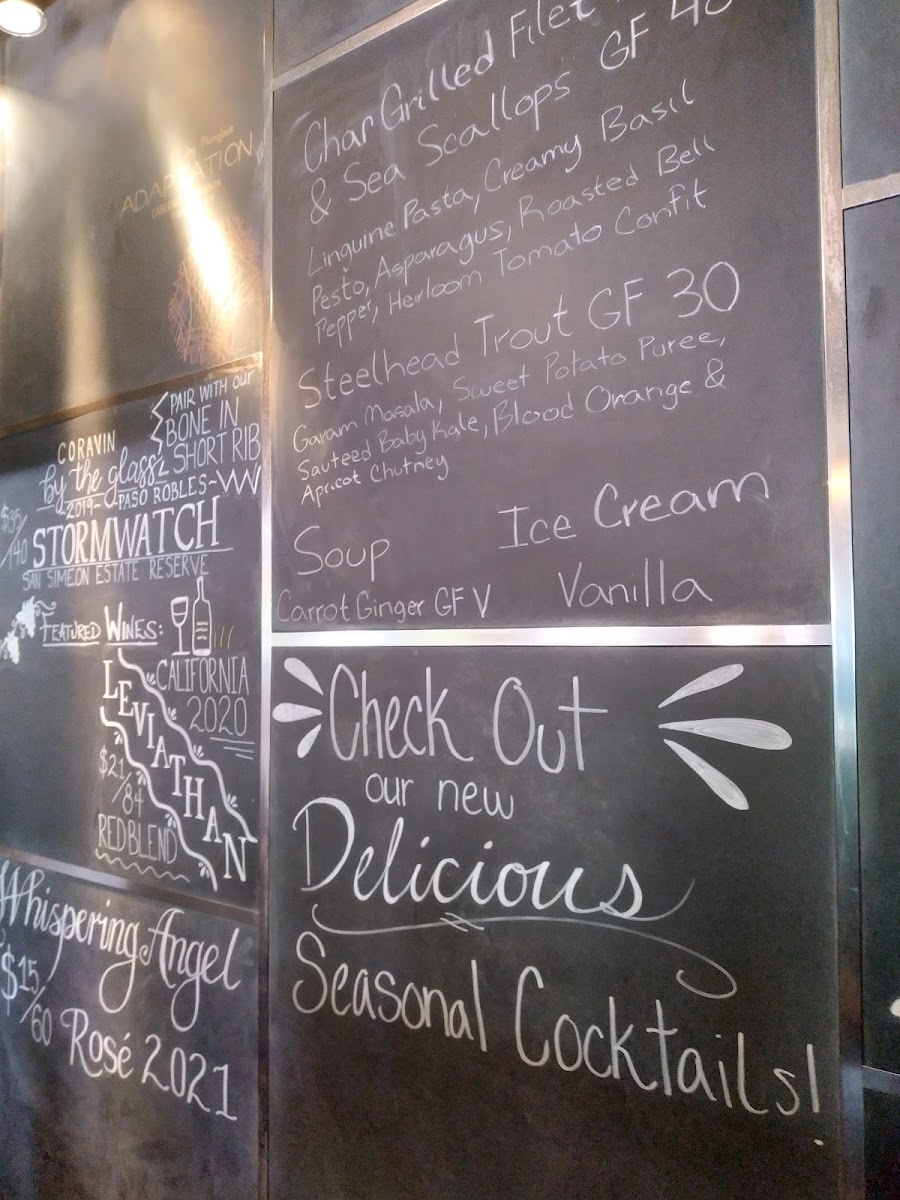 ADAPTATION
PAIR WITH OUR
BONE IN
SHORT RIB
CORAVIN
by the glass:
2019 - PASO ROBLES
$35/
140 STORMWATCH
SAN SIMEON ESTATE RESERVE
FEATURED WINES:
LEVIATHAN
CALIFORNIA
2020
$21
/84
RED BLEND
Whispering Angel
$15
/60 Rosé 2021
Char Grilled Filet
& Sea Scallops GF 48
Linguine Pasta, Creamy Basil
Pesto, Asparagus, Roasted Bell
Pepper, Heirloom Tomato Confit
Steelhead Trout GF 30
Garam Masala, Sweet Potato Puree,
Sauteed Baby Kale, Blood Orange &
Apricot Chutney
Soup
Carrot Ginger GF V
Ice Cream
Vanilla
Check Out
our new
Delicious
Seasonal Cocktails!